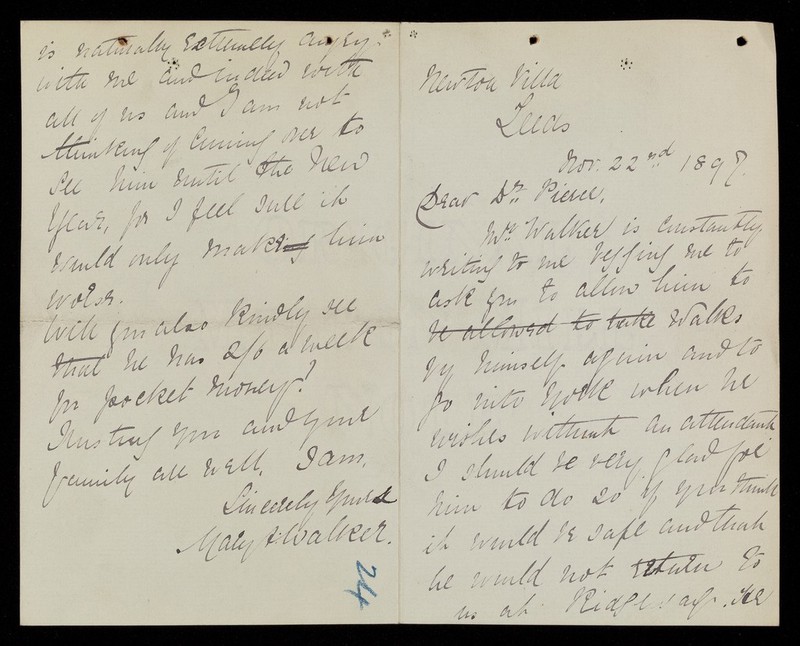 Newton Villa
Leeds
Nov. 22nd 1897.
Dear Dr. Pierce,
Mr. Walker is constantly
writing to me begging me to
ask you to allow him to
be allowed to take walks
by himself again and to
go into York when he
wishes without an attendant
I should be very glad for
him to do so if you think
it would be safe and that
he would not return to
us at. He
is naturally extremely angry
with me and indeed with
all of us and I am not
thinking of coming over to
see him until the New
Year, for I feel sure it
would only making him
worse.
Will you also kindly see
that he has 2/6 a week
for pocket money?
Trusting you and your
family all well, I am,
Sincerely yours
Mary Walker.
24